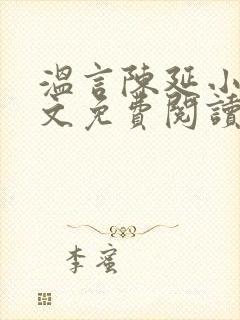 溫言陳延小
文免費閱讀
李蜜